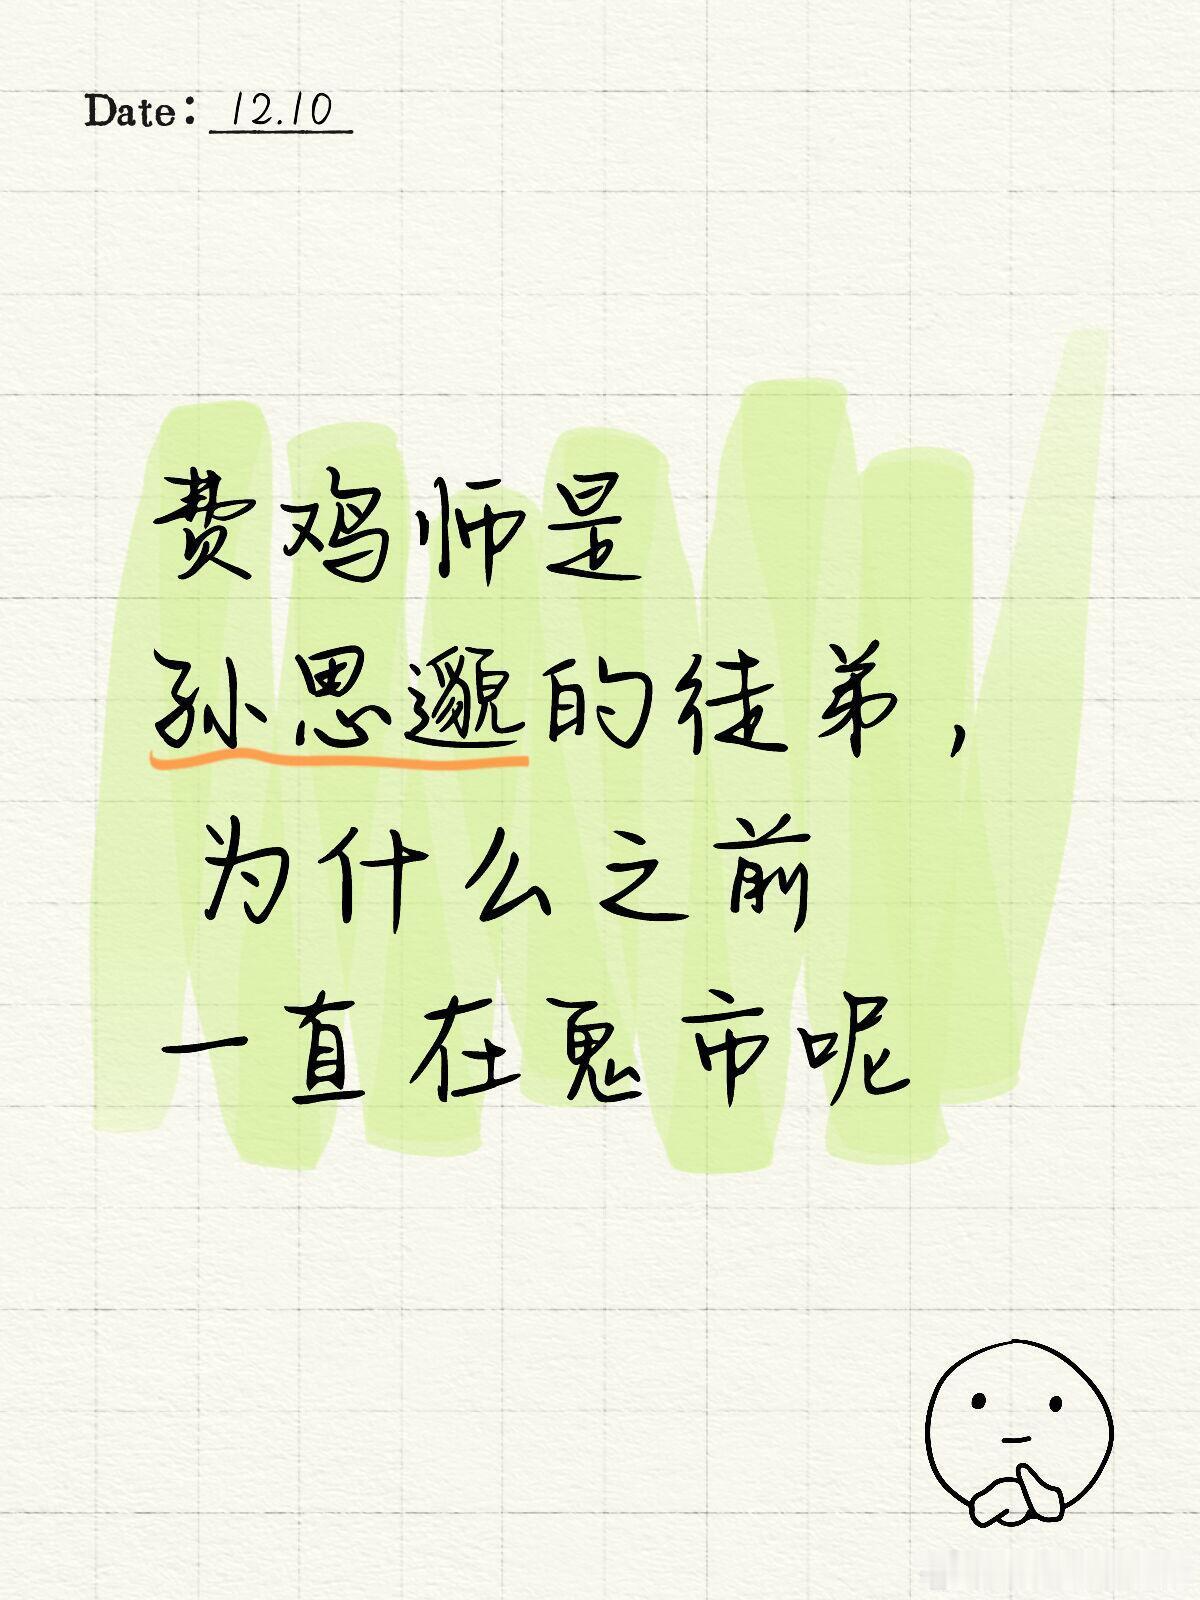 Date: 12.10
费鸡师是
孙思邈的徒弟，
为什么之前
一直在鬼市呢